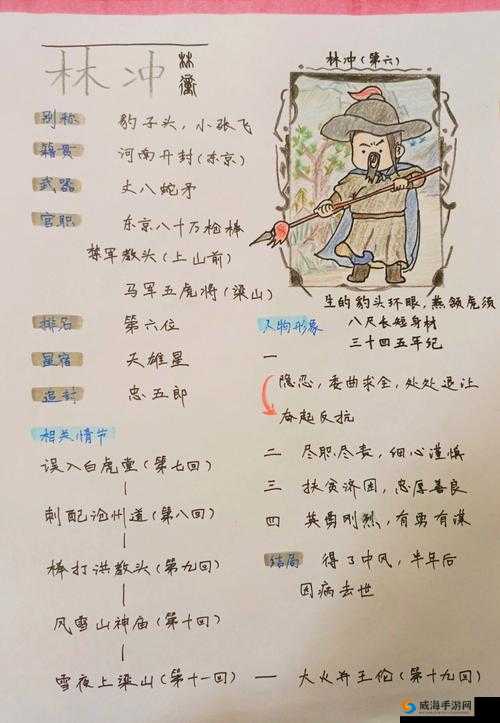 林冲
林衝
别称 豹子头，小张飞
籍贯 河南开封(东京)
武器 丈八蛇矛
官职 东京八十万枪棒
禁军教头(上山前)
马军五虎将(梁山)
排名 第六位
星宿 天雄星
追封 忠五郎
相关情节
误入白虎堂(第七回)
刺配沧州道(第八回)
棒打洪教头(第九回)
风雪山神庙(第十回)
雪夜上梁山(第十一回) — 大火并王伦(第十九回)
林冲(第六)
生的豹头环眼，燕颔虎须
八尺长短身材
三十四五年纪
人物形象
一
隐忍，委曲求全，处处退让
奋起反抗
二 尽职尽责，细心谨慎
三 扶贫济困，忠厚善良
四 英勇刚烈，有勇有谋
结局 得了中风，半年后
因病去世
威海手游网